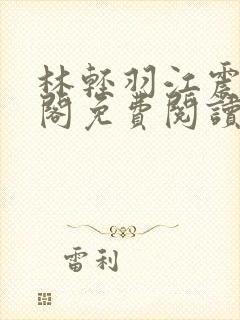 林輕羽江震
閣免費閱讀
雷利